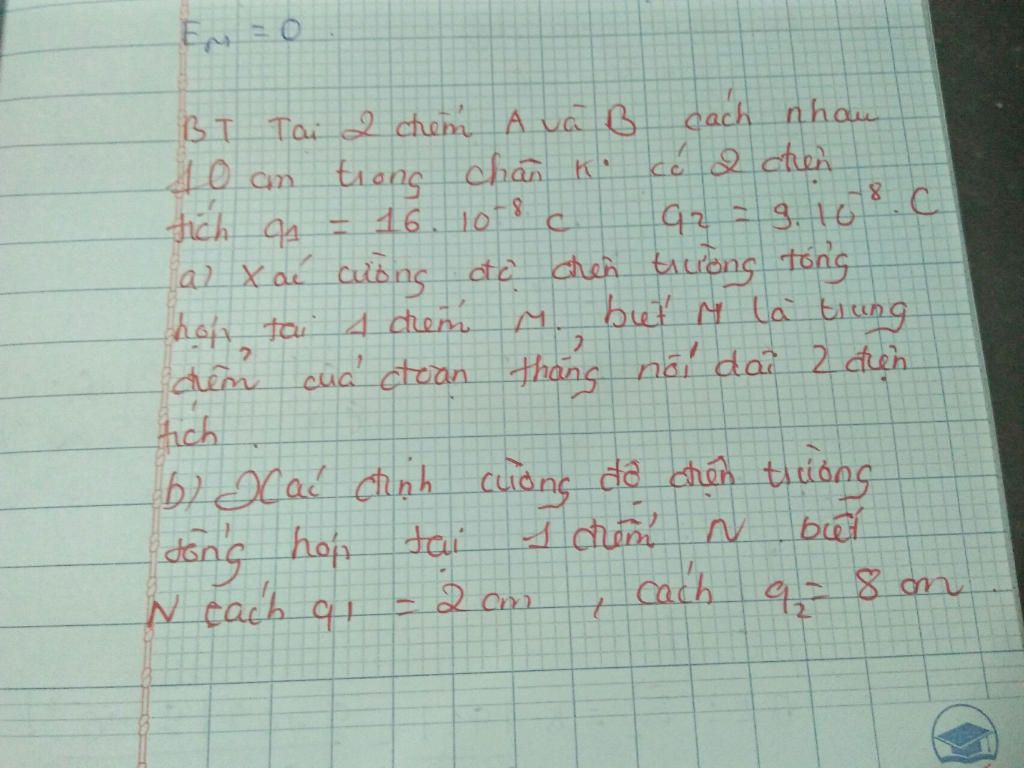 E_M = 0.
BT Tại 2 điểm A và B cách nhau
10 cm trong chân K° có 2 điện
tích q1 = 16. 10⁻⁸ C q2 = 9.10⁻⁸. C
a) Xác cường độ điện trường tổng
hợp tại 1 điểm M. biết M là trung
điểm của đoạn thẳng nối dài 2 điện
tích.
b) Xác định cường độ điện trường
tổng hợp tại 1 điểm N biết
N cách q1 = 2 cm , cách q2 = 8 cm.